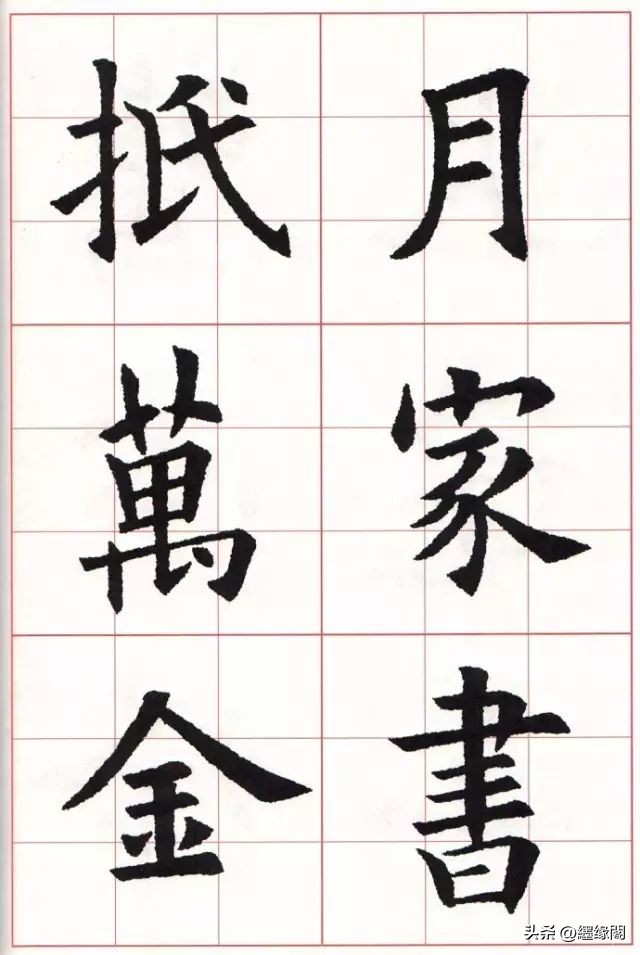 月家書
抵萬金
头条 @纆缘閣